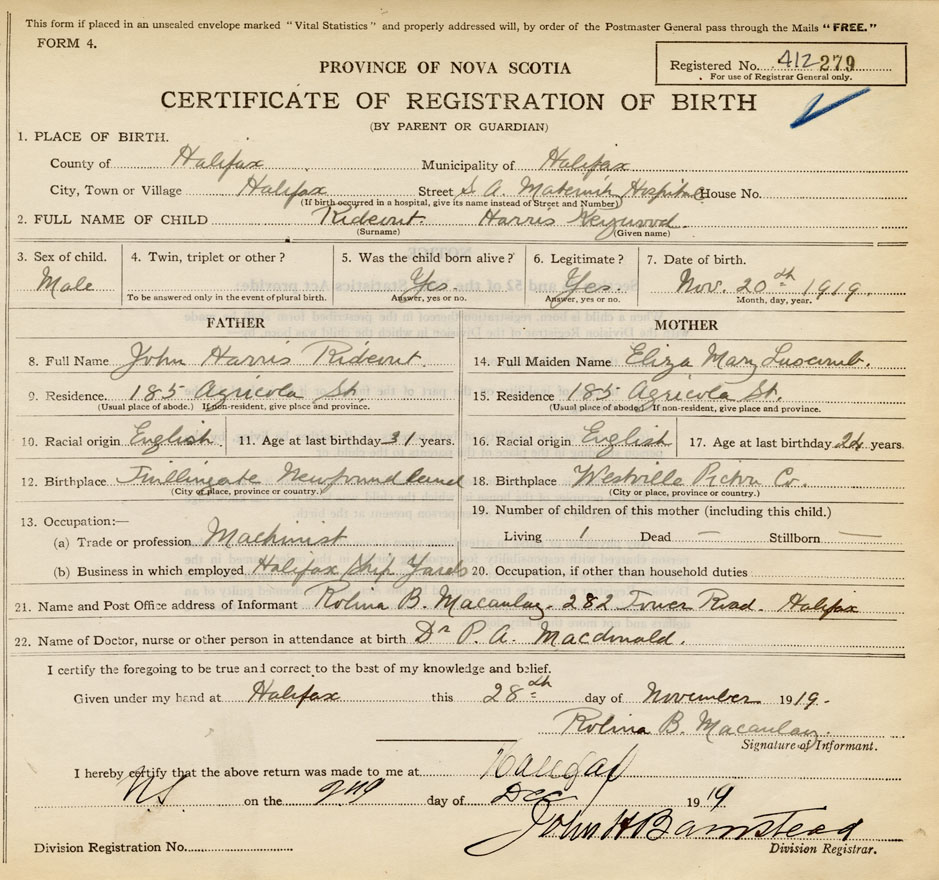 This form if placed in an unsealed envelope marked "Vital Statistics" and properly addressed will, by order of the Postmaster General pass through the Mails "FREE."
FORM 4.
Registered No. 412279
For use of Registrar General only.
PROVINCE OF NOVA SCOTIA
CERTIFICATE OF REGISTRATION OF BIRTH
(BY PARENT OR GUARDIAN)
1. PLACE OF BIRTH.
County of Halifax Municipality of Halifax
City, Town or Village Halifax Street S. A. Maternity Hospital House No.
(If birth occurred in a hospital, give its name instead of Street and Number)
2. FULL NAME OF CHILD Rideout Harris
(Surname) (Given name)
3. Sex of child. 4. Twin, triplet or other? 5. Was the child born alive? 6. Legitimate? 7. Date of birth.
Male Yes. Yes. Nov. 20th 1919.
To be answered only in the event of plural birth. Answer, yes or no. Answer, yes or no. Month, day, year.
FATHER MOTHER
8. Full Name John Harris Rideout 14. Full Maiden Name Eliza Mary Luscomb.
9. Residence. 185 Agricola St. 15. Residence 185 Agricola St.
(Usual place of abode.) If non-resident, give place and province. (Usual place of abode) If non-resident, give place and province.
10. Racial origin English 11. Age at last birthday 31 years. 16. Racial origin English 17. Age at last birthday 24 years.
12. Birthplace Twillingate Newfoundland 18. Birthplace Westville Pictou Co.
(City or place, province or country.) (City or place, province or country.)
13. Occupation:— 19. Number of children of this mother (including this child.)
(a) Trade or profession Machinist Living 1 Dead — Stillborn —
(b) Business in which employed Halifax Ship Yards 20. Occupation, if other than household duties
21. Name and Post Office address of Informant Rolina B. Macaulay. 282 Tower Road. Halifax
22. Name of Doctor, nurse or other person in attendance at birth Dr P. A. Macdonald.
I certify the foregoing to be true and correct to the best of my knowledge and belief.
Given under my hand at Halifax this 28th day of November 1919.
Rolina B. Macaulay
Signature of Informant.
I hereby certify that the above return was made to me at Halifax
NS on the day of Dec 1919
John H Barnstead
Division Registration No. Division Registrar.